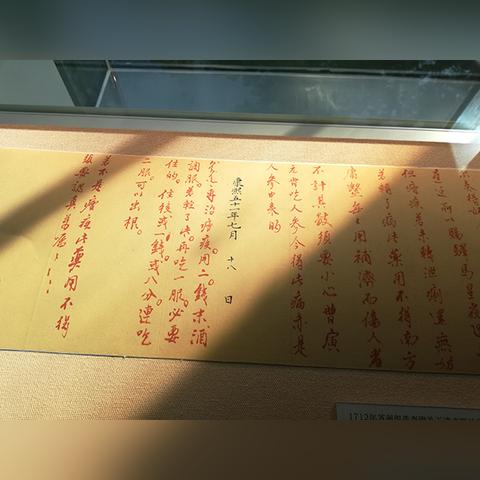 奏得好
遲延所以賜驛馬星夜
但瘧疾若未轉泄痢還無妨
若轉了病此藥用不得南方
庸醫每每用補濟而傷人者
不計其數須要小心曹寅
元肯吃人參今得此病亦是
人參中來的
康熙五十一年七月 十八 日
專治瘧疾用二錢末酒
調服若輕了些再吃一服必要
住的住後或一錢或八分連吃
二服可以出根
若不是瘧疾此藥用不得
須要認真萬囑
1712年